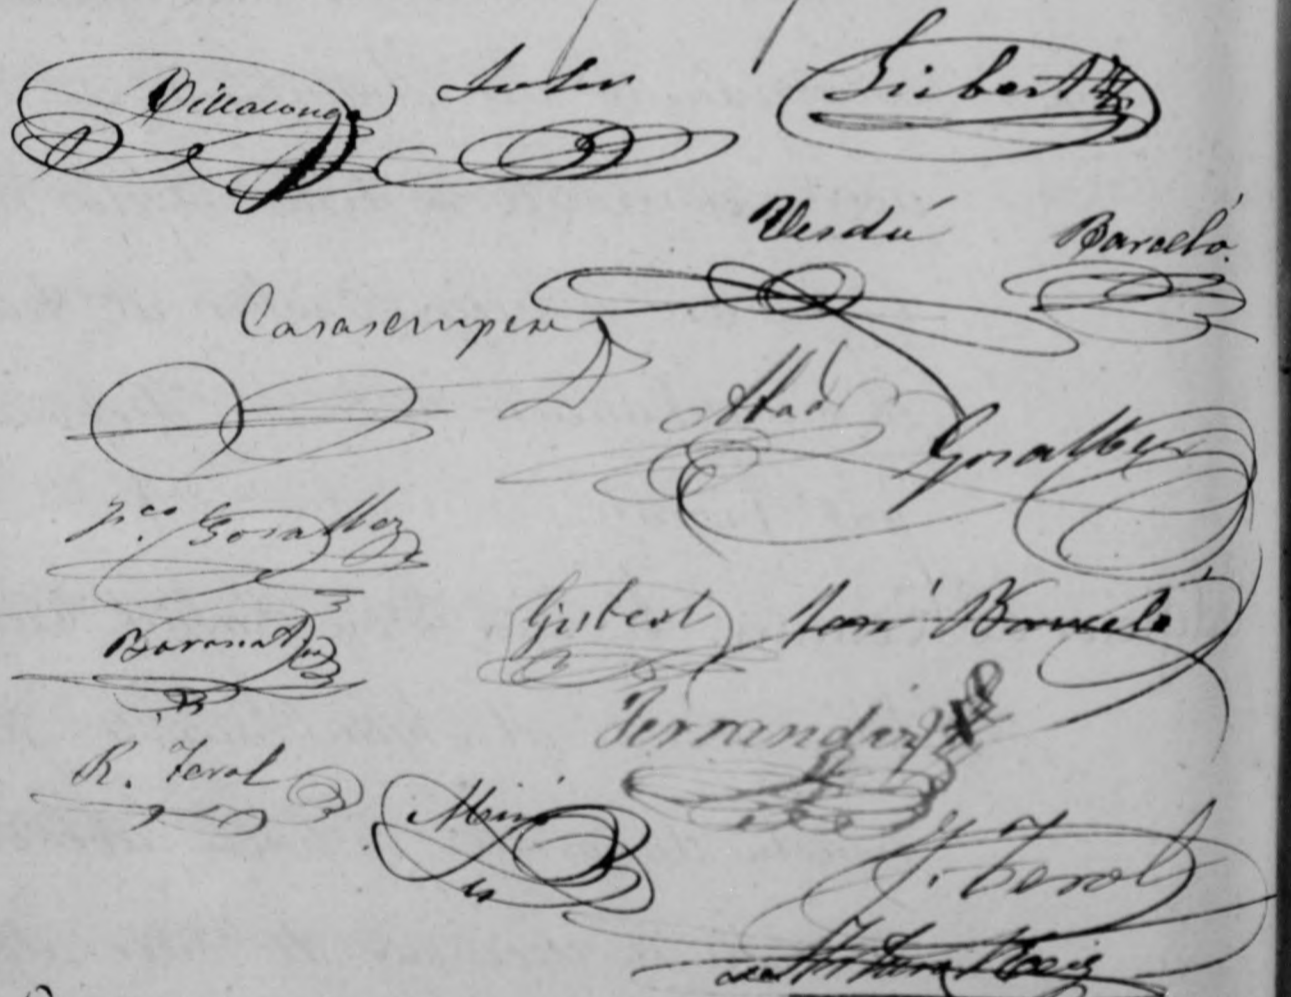 Villalonga Soler Gisbert
Verdú Barceló
Casasempere
Abad Gosalbez
Fco. Gosalbez
Gisbert José Barceló
Fernandiz
R. Terol
Miró
J. Terol